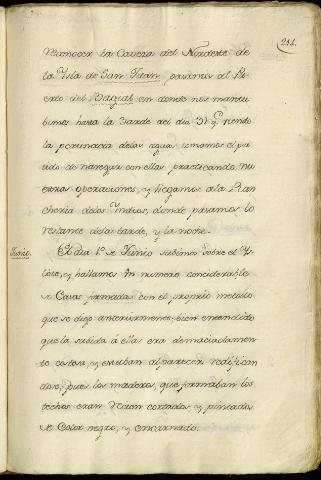 211.
Reconocer la Cavera del Nordeste de
la Ysla de San Juan, pasamos al Pu
erto del Bagual en donde nos mantu
bimos hasta la tarde del dia 31 q̃ viendo
la permanencia delas aguas tomamos el par
tido de navegar con ellas practicando nu
estras operaciones, y llegamos ala Ran
cheria delos Yndios, donde pasamos lo
restante dela tarde, y la noche.
Junio. El dia 1.º de Junio subimos sobre el Ys
lote, y hallamos un numero considerable
de Casas formadas con el proprio metodo
que se dijo anteriormente; bien entendido
que la subida á ella era demaciadamen
te costosa, y estaban al parecer redifican
dose, pues los maderos, que formaban los
techos eran recien cortados, y pintados
de Color negro, y encarnado.